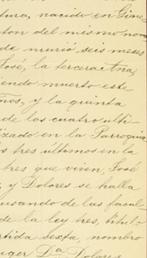 tura, nacido en Gine
ton del mismo nom
de murió seis meses
José, la tercera
iendo muerto este
ños, y la quinta
de los cuatro ulti
izado en la Parroquia
os tres últimos en la
tres que viven, José
y Dolores se halla
usando de las facul
de la ley tres, titul
rtida sexta, nombro
uger Dª Dolores